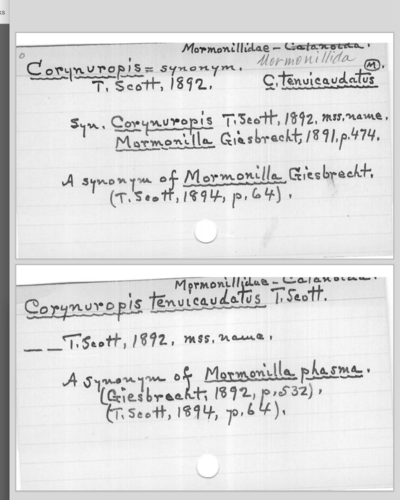 Mormonillidae - Calanoida.
Mormonillida
Corynuropis = synonym. (M).
T. Scott, 1892. C. tenuicaudatus
Syn. Corynuropis T. Scott, 1892. mss. name.
Mormonilla Giesbrecht, 1891, p. 474.
A synonym of Mormonilla Giesbrecht.
(T. Scott, 1894, p. 64).
Mormonillidae - Calanoida.
Corynuropis tenuicaudatus T. Scott.
_ _ T. Scott, 1892. mss. name.
A synonym of Mormonilla phasma.
(Giesbrecht, 1892, p. 532).
(T. Scott, 1894, p. 64).